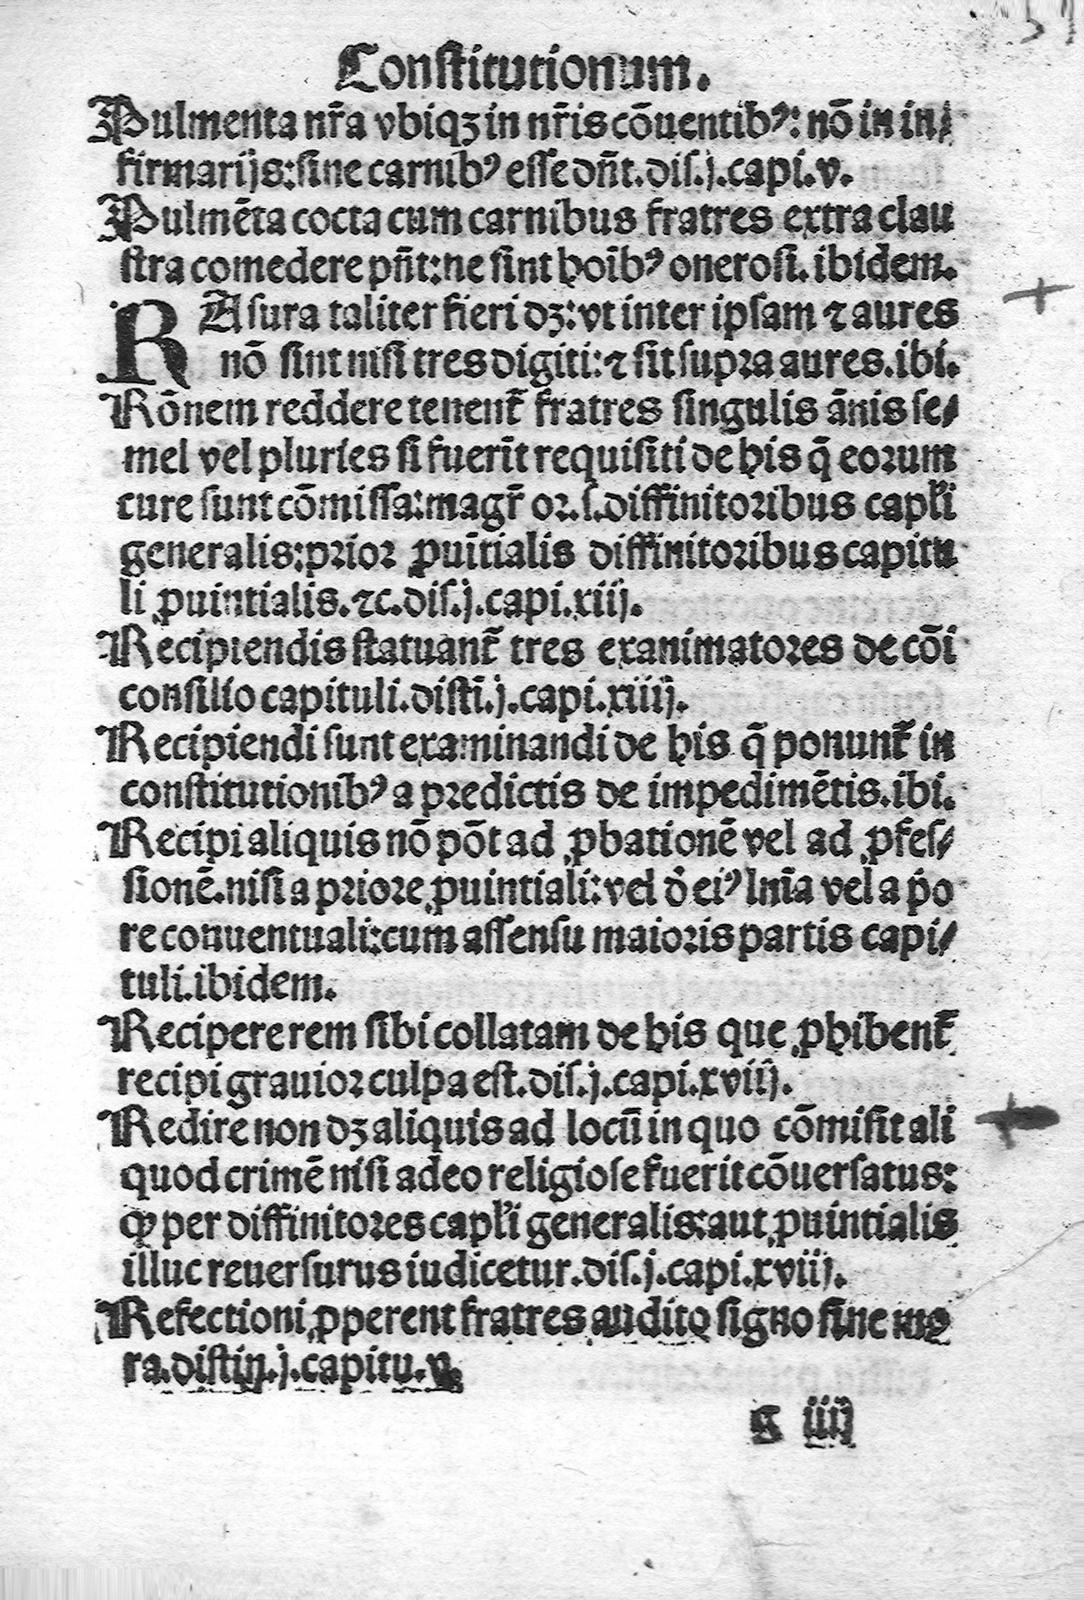 Constitutionum.
Pulmenta nr̄a vbiqꝫ in nr̄is cōuentibꝰ: nō in in⸗
firmarijs: sine carnibꝰ esse dn̄t. dis. j. capi. v.
Pulmēta cocta cum carnibus fratres extra clau
stra comedere pn̄t: ne sint hoīibꝰ onerosi. ibidem.
RAsura taliter fieri dꝫ: vt inter ipsam ⁊ aures
nō sint nisi tres digiti: ⁊ sit supra aures. ibi.
Rōnem reddere tenent̄ fratres singulis ānis se⸗
mel vel pluries si fuerīt requisiti de his q̄ eorum
cure sunt cōmissa: magr̄ or. s. diffinitoribus capl̄i
generalis: prior ꝓuītialis diffinitoribus capitu
li ꝓuintialis. ⁊c. dis. j. capi. xiij.
Recipiendis statuant̄ tres exanimatores de cōi
consilio capituli. distī. j. capi. xiiij.
Recipiendi sunt examinandi de his q̄ ponunt̄ in
constitutionibꝰ a predictis de impedimētis. ibi.
Recipi aliquis nō pōt ad ꝓbationē vel ad ꝓfes⸗
sionē. nisi a priore ꝓuintiali: vel d̓ eiꝰ lnīa vel a p̓o
re conuentuali: cum assensu maioris partis capi⸗
tuli. ibidem.
Recipere rem sibi collatam de his que ꝓhibent̄
recipi grauior culpa est. dis. j. capi. xviij.
Redire non dꝫ aliquis ad locū in quo cōmisit ali
quod crimē nisi adeo religiose fuerit cōuersatus:
ꝙ per diffinitores capl̄i generalis: aut ꝓuintialis
illuc reuersurus iudicetur. dis. j. capi. xviij.
Refectioni ꝓperent fratres audito signo sine mo
ra. distin. j. capitu. v.
g iiij